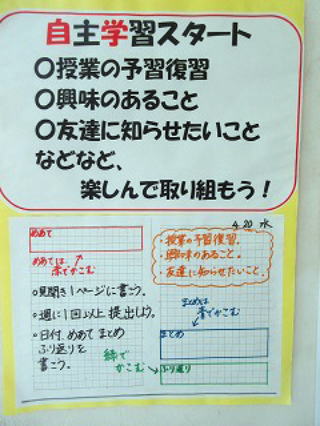 自主学習スタート
○授業の予習復習
○興味のあること
○友達に知らせたいこと
などなど、
楽しんで取り組もう！
4.20 水
めあて
めあては
赤でかこむ
○見開き1ページに書こう。
・週に1回以上提出しよう。
・日付、めあて まとめ
ふり返りを
書こう。
緑で
かこむ
・授業の予習復習。
・興味のあること。
・友達に知らせたいこと。
まとめは
青でかこむ
まとめ
ふり返り